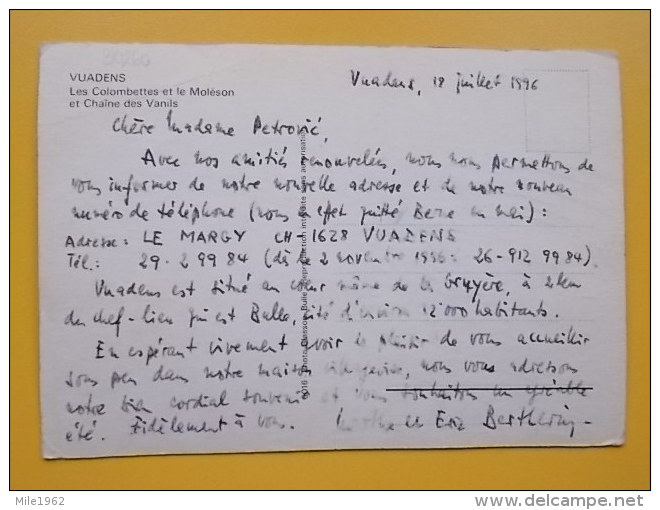 VUADENS
Les Colombettes et le Moléson
et Chaîne des Vanils
Vuadens, 18 juillet 1996
Chère Madame Petrović,
Avec nos amitiés renouvelées, nous nous permettons de
vous informer de notre nouvelle adresse et de notre nouveau
numéro de téléphone (nous en effet quitté Berne en mai) :
Adresse : LE MARGY CH-1628 VUADENS
Tél. : 29. 2 99 84 (dès le 2 novembre 1996 : 26-912 99 84).
Vuadens est situé au cœur même de la Gruyère, à 2 km
du chef-lieu qui est Bulle, cité d'environ 12'000 habitants.
En espérant vivement avoir le plaisir de vous accueillir
sous peu dans notre maison, nous vous adressons
notre bien cordial souvenir et vous souhaitons un agréable
été. Fidèlement à vous. Marthe et Eric
Mile1962